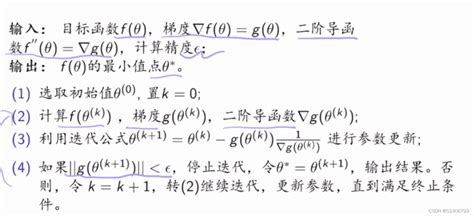 输入： 目标函数f(θ)， 梯度∇f(θ) = g(θ)， 二阶导函
数f''(θ) = ∇g(θ)， 计算精度ϵ；
输出： f(θ)的最小值点θ*。
(1) 选取初始值θ^(0)， 置k = 0;
(2) 计算f(θ^(k)) ，梯度g(θ^(k))，二阶导函数∇g(θ^(k));
(3) 利用迭代公式θ^(k+1) = θ^(k) − g(θ^(k)) 1/g(θ^(k)) 进行参数更新;
(4) 如果||g(θ^(k+1))|| < ϵ， 停止迭代，令θ* = θ^(k+1)，输出结果。否
则，令 k = k + 1， 转(2)继续迭代，更新参数，直到满足终止条
件。